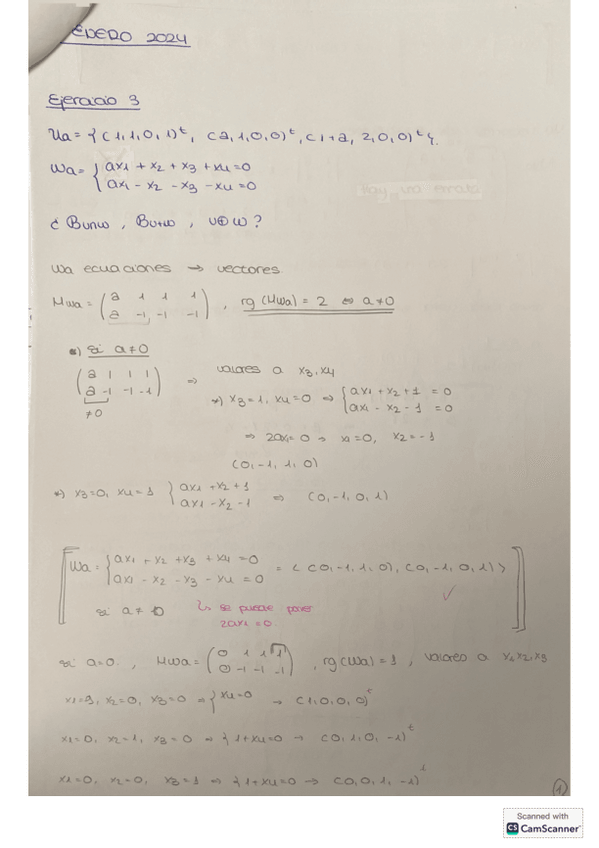 ENERO 2024
Ejercicio 3
Ua = {(1,1,0,1)^t, (a,1,0,0)^t, (1+a, 2,0,0)^t}.
Wa = { ax1 + x2 + x3 + x4 = 0
ax1 - x2 - x3 - x4 = 0
Hay una errata
¿ Bunw, Bu+w, u⊕w?
Wa ecuaciones → vectores
MWa = ( a 1 1 1
a -1 -1 -1 ), rg (MWa) = 2 ⇔ a≠0
*) si a≠0
( a 1 1 1
a -1 -1 -1 ) ⇒ valores a x3, x4
≠0
*) x3=1, x4=0 ⇒ { ax1 + x2 + 1 = 0
ax1 - x2 - 1 = 0
⇒ 2ax1=0 → x1=0, x2=-1
(0,-1,1,0)
*) x3=0, x4=1 { ax1 + x2 + 1
ax1 - x2 - 1 ⇒ (0,-1,0,1)
Wa = { ax1 + x2 + x3 + x4 = 0
ax1 - x2 - x3 - x4 = 0 = < (0,-1,1,0), (0,-1,0,1) >
si a ≠ 0 ↳ se puede poner
2ax1 = 0.
si a=0, MWa = ( 0 1 1 1
0 -1 -1 -1 ), rg(Wa)=1, valores a x1 x2, x3
x1=1, x2=0, x3=0 ⇒ { x4=0 → (1,0,0,0)^t
x1=0, x2=1, x3=0 ⇒ { 1+x4=0 → (0,1,0,-1)^t
x1=0, x2=0, x3=1 ⇒ { 1+x4=0 → (0,0,1,-1)^t
1
Scanned with
CS CamScanner